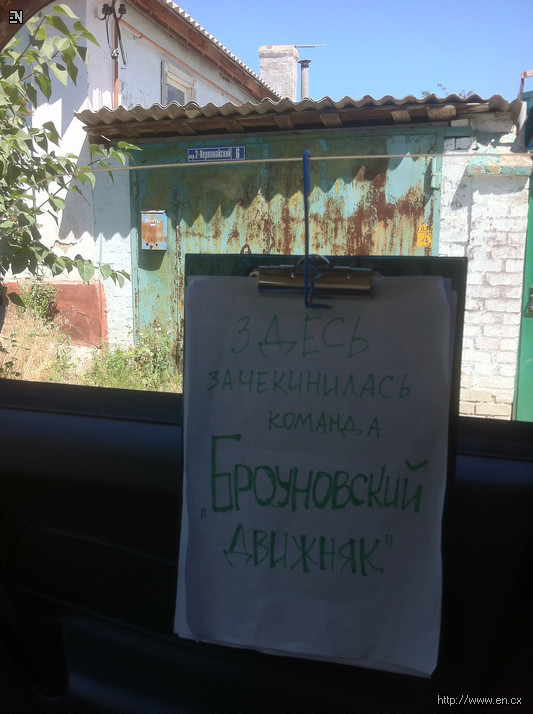 EN
пер. 2-Первомайский 6
ЗДЕСЬ
ЗАЧЕКИНИЛАСЬ
КОМАНДА
„БРОУНОВСКИЙ
ДВИЖНЯК"
http://www.en.cx